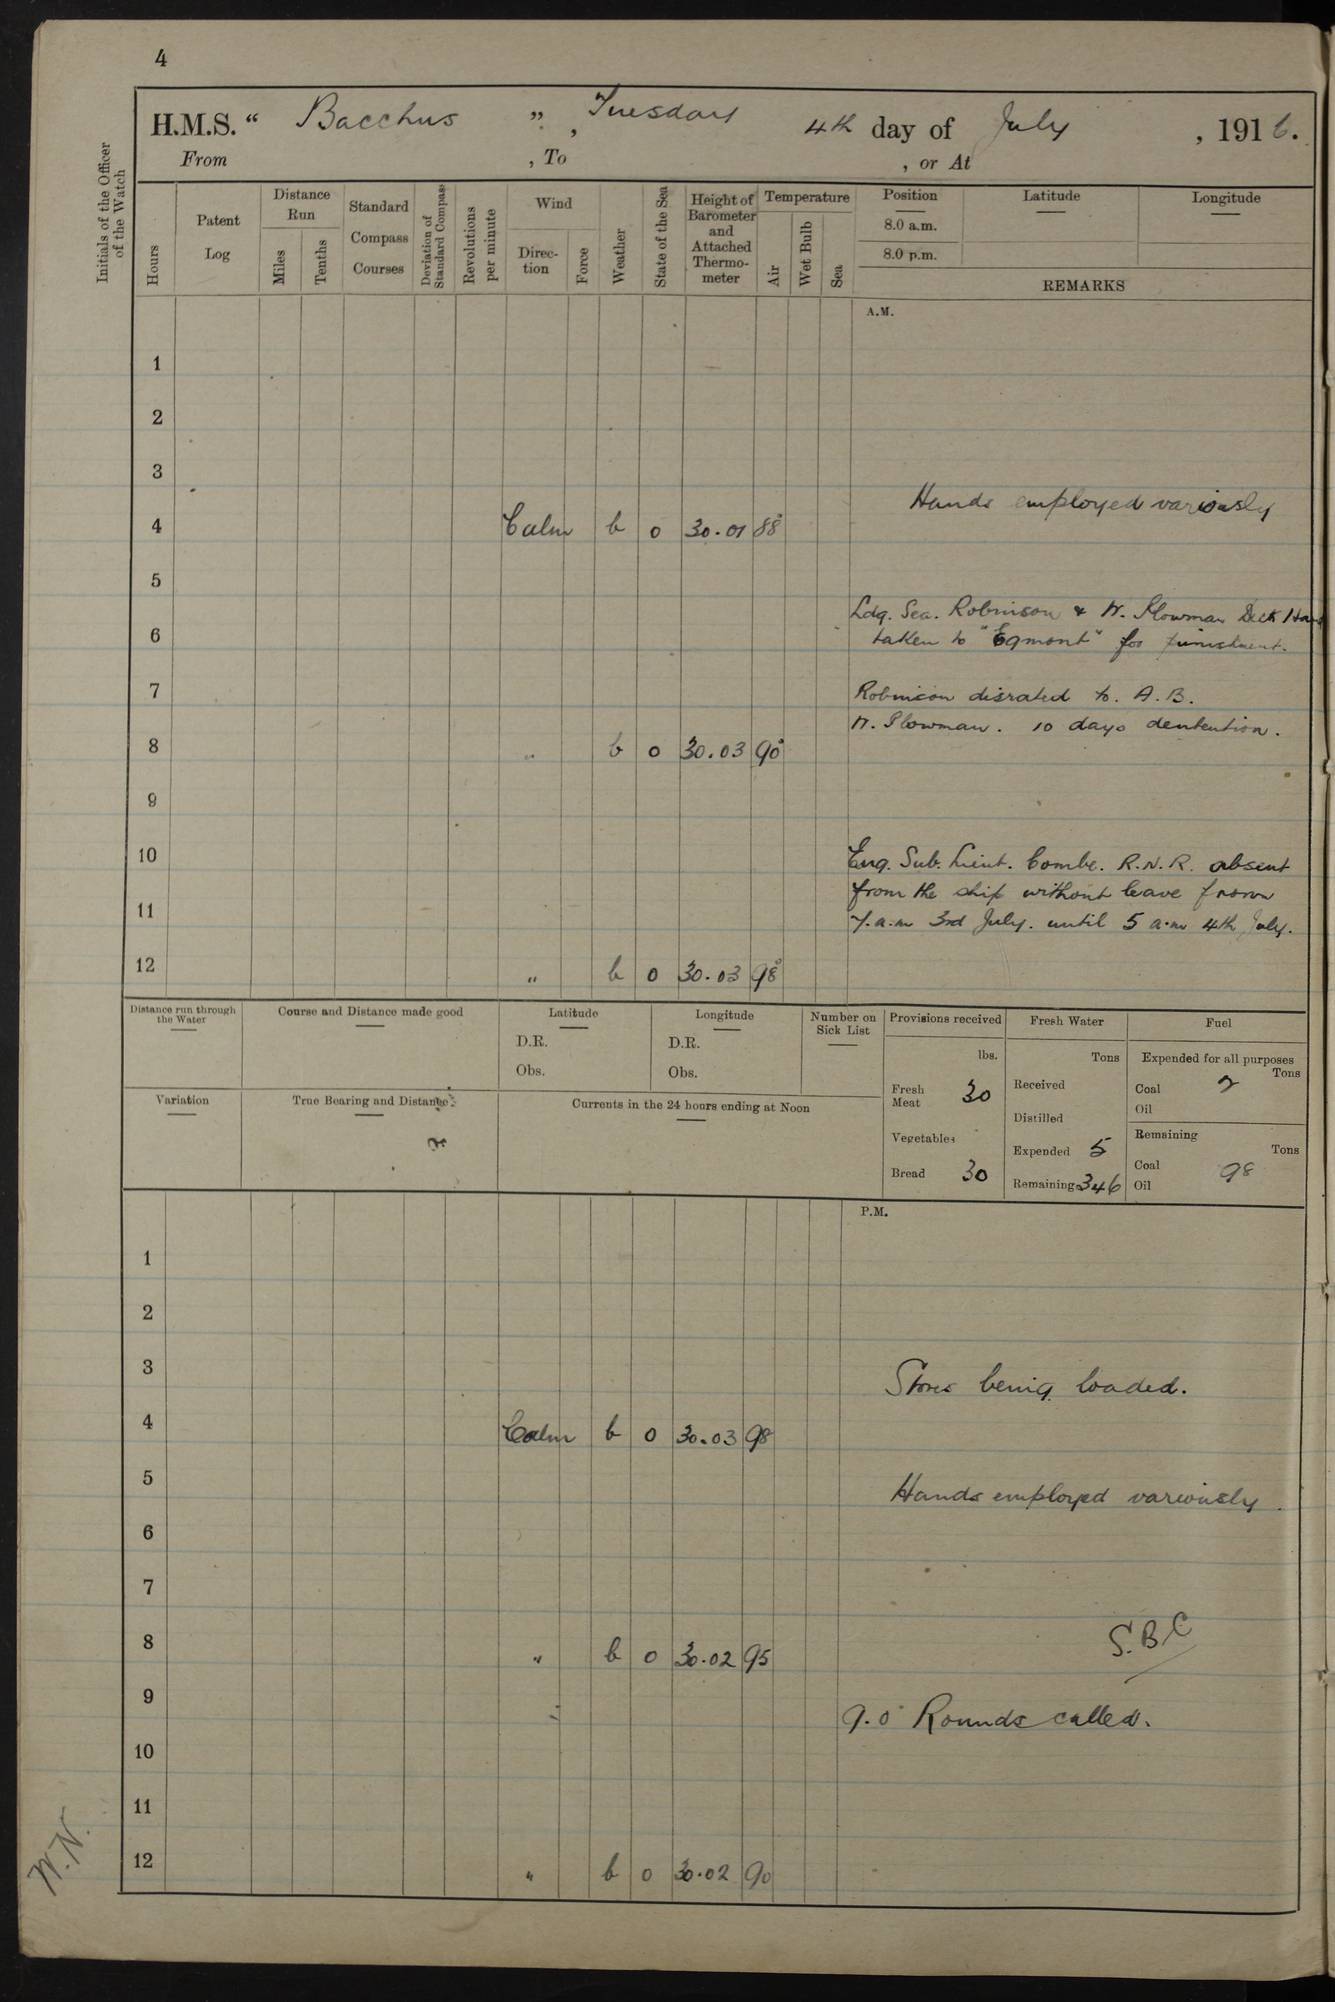 4
H.M.S. “ Bacchus ” , Tuesday 4th day of July , 1916.
From , To , or At
Initials of the Officer of the Watch
Hours
Patent Log
Distance Run
Miles
Tenths
Standard Compass Courses
Deviation of Standard Compass
Revolutions per minute
Wind
Direction
Force
Weather
State of the Sea
Height of Barometer and Attached Thermometer
Temperature
Air
Wet Bulb
Sea
Position Latitude Longitude
8.0 a.m.
8.0 p.m.
REMARKS
A.M.
1
2
3
Hands employed variously
4 Calm b 0 30.01 88°
5
Ldg. Sea. Robinson & W. Plowman Deck Hand
6 taken to "Egmont" for punishment.
7 Robinson disrated to A.B.
W. Plowman. 10 days dentention.
8 " b 0 30.03 90°
9
10 Eng. Sub. Lieut. Combe. R.N.R. absent
from the ship without leave from
11 7.a.m 3rd July. until 5 a.m 4th July.
12 " b 0 30.03 98°
Distance run through the Water
Course and Distance made good
Latitude
D.R.
Obs.
Longitude
D.R.
Obs.
Number on Sick List
Provisions received
lbs.
Fresh Meat 30
Vegetables
Bread 30
Fresh Water
Tons
Received
Distilled
Expended 5
Remaining 346
Fuel
Expended for all purposes
Tons
Coal 2
Oil
Remaining
Tons
Coal 98
Oil
Variation
True Bearing and Distance
Currents in the 24 hours ending at Noon
P.M.
1
2
3 Stores being loaded.
4 Calm b 0 30.03 98
5 Hands employed variously.
6
7
8 " b 0 30.02 95 S.B.C
9 9.0 Rounds called.
10
11
12 " b 0 30.02 90
W.N.